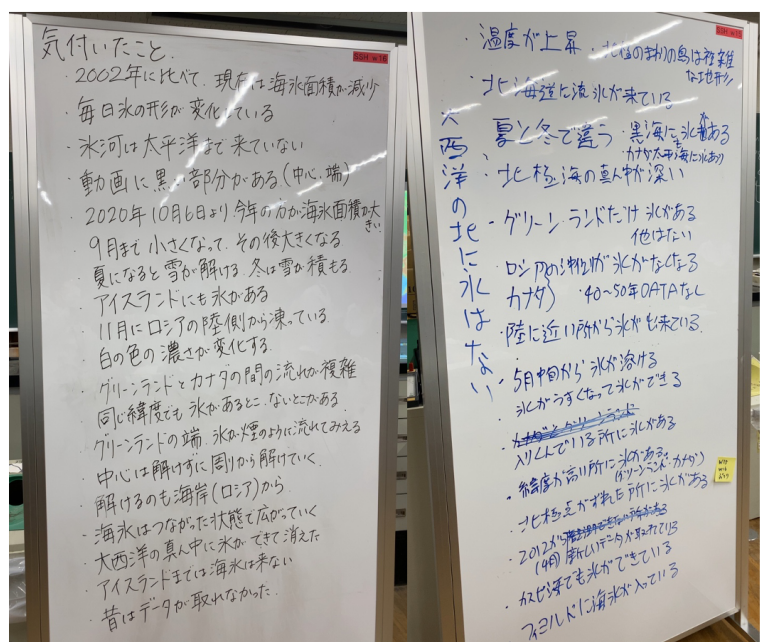 気付いたこと
SSH
・2002年に比べて、現在は海氷面積が減少
・毎日氷の形が変化している
・氷河は太平洋まで来ていない
・動画に黒い部分がある(中心、端)
・2020年10月6日より、今年の方が海氷面積が大きい
・9月まで小さくなって、その後大きくなる
・夏になると雪が解ける、冬は雪が積もる
・アイスランドにも氷がある
・11月にロシアの陸側から凍っている
・白の色の濃さが変化する
・グリーンランドとカナダの間の流れが複雑
・同じ緯度でも氷があるとこ、ないとこがある
・グリーンランドの端、氷が煙のように流れてみえる
・中心は解けずに周りから解けていく
・解けるのも海岸(ロシア)から
・海氷はつながった状態で広がっていく
・大西洋の真ん中に氷ができて消えた
・アイスランドまでは海氷は来ない
・昔はデータが取れなかった
SSH
・温度が上昇
・北極のまわりの島は複雑な地形
・北海道に流氷が来ている
大西洋の北に氷はない
・夏と冬で違う
・黒海にも氷がある
・カナダ太平海に氷あり
・北極海の真ん中が深い
・グリーンランドだけ氷がある
他はない
・ロシアの沖側が氷がなくなる
カナダ)
・40~50年DATAなし
・陸に近い所から氷が出来ている
・5月中旬から氷が溶ける
・氷がうすくなって氷ができる
・入りくんでいる所に氷がある
・緯度が高い所に氷がある。
(グリーンランド・カナダ)
・北極点がずれた所に氷がある
・2012から
(4月)新しいデータが取れている
・カスピ海でも氷ができている
・フィヨルドに海氷が入っている